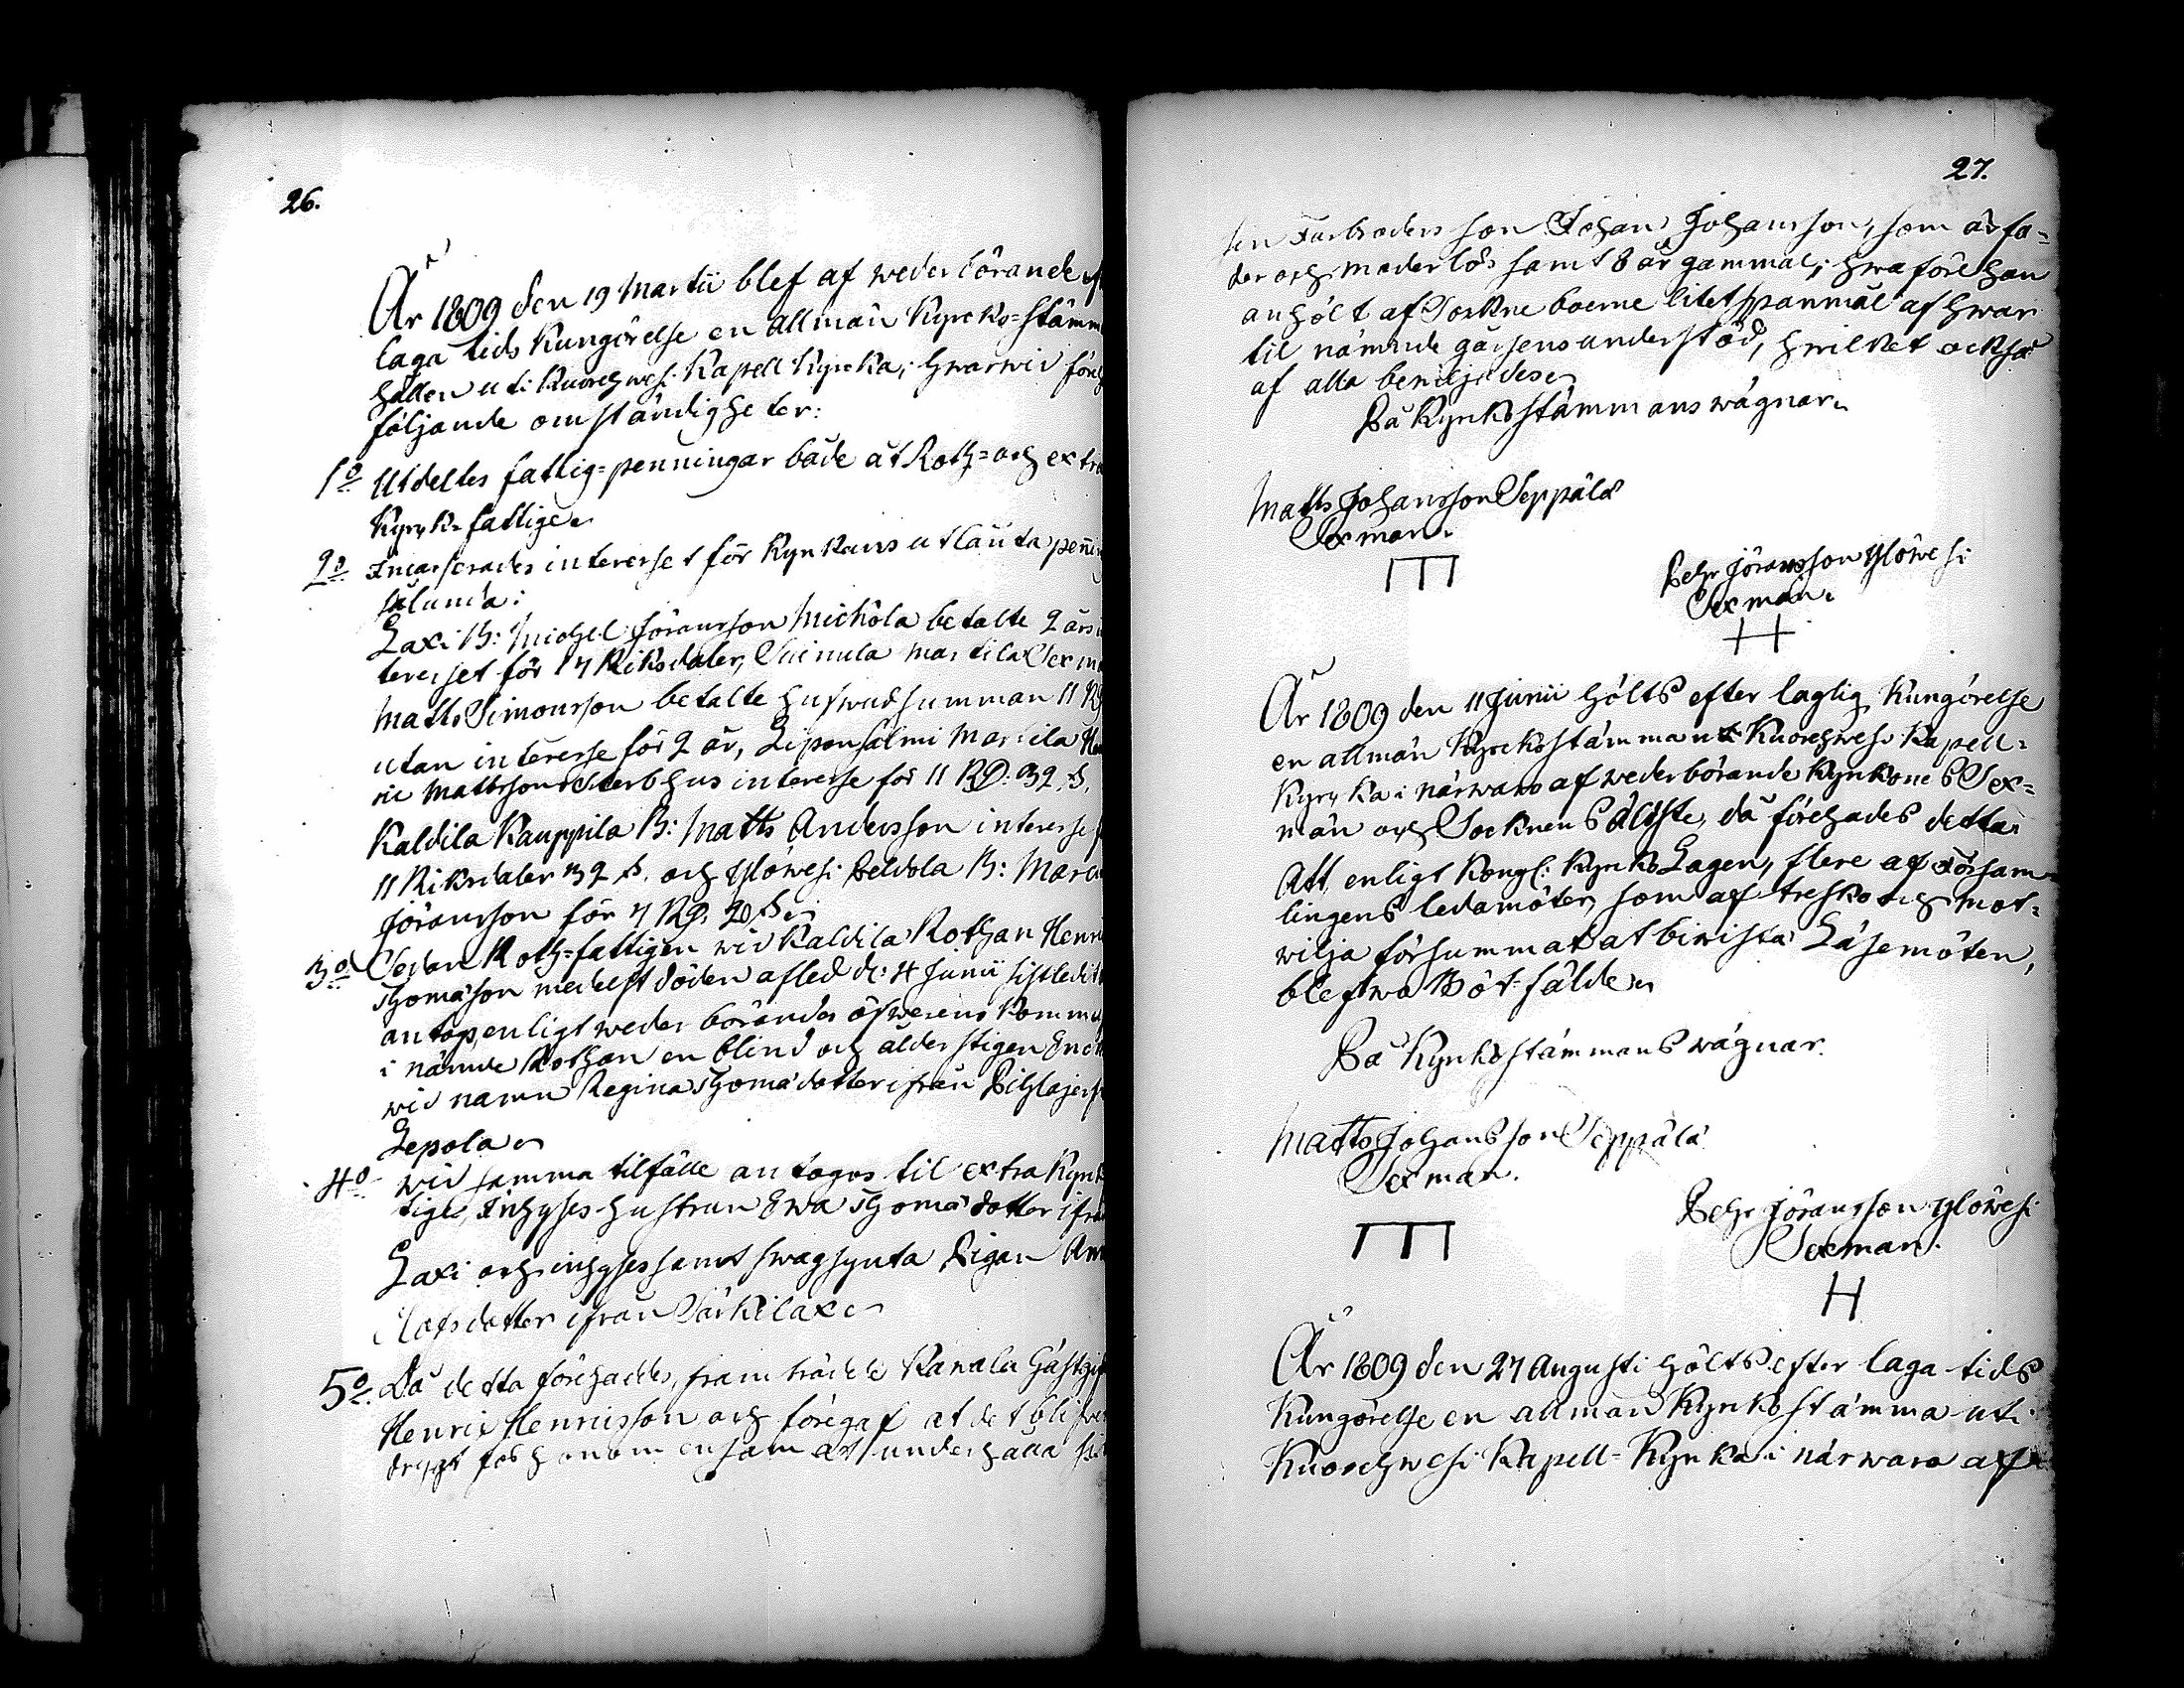 26.
År 1809 den 19 Martii blef af wederbörande
laga tids kungörelse en allmän Kyrko=stäm
hållen uti Kuorehwesi Kapell Kyrcka; hwarwid
följande omständigheter:
1o Utdeltes fattig=penningar både åt Roth= och extra
Kyrk=fattige
2o Incasserades interesset för Kyrkans utlånta
sålunda:
Laxi B: Michel Jöransson Michola betalte 2 års
teresset för 17 Riksdaler, Suinula Martila Sexm
Matts Simonsson betalte hufwudsumman 11
utan interesse för 2 år, Leponsalmi Martila
ric Mattsson Sterbhus interesse för 11 RD. 32 s.
Kaldila Kauppila B: Matts Andersson interesse
11 Riksdaler 32 s. och Ylöwesi Peldola B: Marc
Jöransson för 7 RD. 20 s.
3o Sedan Roth=fattigen wid Kaldila Rothan Henri
Thomasson medelst döden afled d: 4 Junii sistled
antogs, enligt wederbörandes öfwerens komm
i nämde Rothan en blind och ålderstigen
wid namn Regina Thomædotter ifrån Pihlajes
Lepola
4o wid samma tilfälle antogos til extra Kyrk
tige, Inhyses-hustrun Ewa Thomædotter ifrå
Laxi och inhyses samt swagsynta Pigan
Olofsdotter ifrån Särkilax
5o Då detta förehaddes, framträdde Karnala Gästgif
Henric Henricsson och föregaf at det blifwer
drygt för honom ensam at underhålla
27.
sin Farbroders son Johan Johansson, som är fa=
der och moderlös samt 8 år gammal; hwaföre han
anhölt af Sokneboerne litet spanmål af hwar
til nämnde gåssens understöd, hwilket också
af alla beviljades
På Kyrkostämmans wägnar
Matts Johansson Seppälä
Sexman.
Pehr Jöransson Ylöwesi
Sexman.
År 1809 den 11 Junii hölts efter laglig Kungörelse
en allmän Kyrckostämma uti Kuorehwesi Kapell=
Kyrcka i närwaro af wederbörande Kyrkones Sex=
män och Socknens äldste, då förehades detta:
Att, enligt Kongl: KyrkoLagen, flere af Försam=
lingens ledamöter, som af tresko och mot=
wilja försummat at biwista Läsemöten,
blefwo Bötfälde
På Kyrkostämmans wägnar.
Matts Johansson Seppälä
Sexman.
Pehr Jöransson Ylöwesi
Sexman.
År 1809 den 27 Augusti hölts efter laga tids
Kungörelse en allmän Kyrkostämma uti
Kuorehwesi Kapell=Kyrka i närwaro af